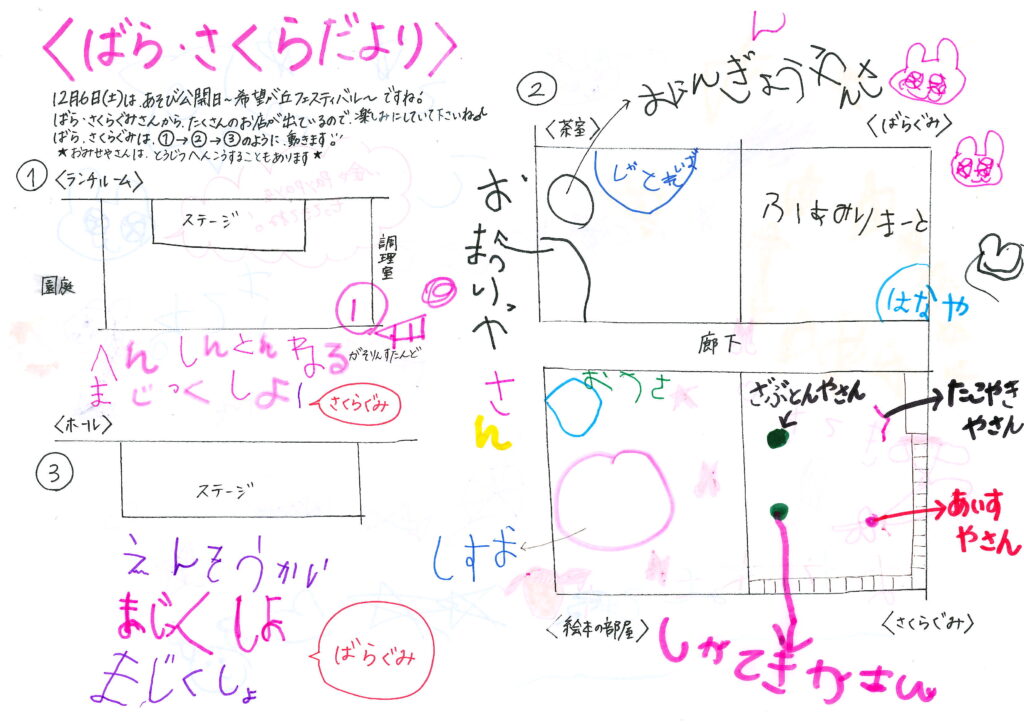 〈ばら・さくらだより〉
12月6日(土)は、あそび公開日~希望が丘フェスティバル~ですね!
ばら・さくらぐみさんから、たくさんのお店が出ているので、楽しみにしていて下さいね♪
ばら、さくらぐみは、①→②→③のように、動きます!!
★おみせやさんは、とうじつへんこうすることもあります★
①〈ランチルーム〉
ステージ
園庭
調理室
1
へんしんとんねる
がそりんすたんど
まじっくしょー
さくらぐみ
〈ホール〉
③
ステージ
えんそうかい
まじくしょ
まじくしょ
ばらぐみ
②
〈茶室〉
おにんぎょうやさん
〈ばらぐみ〉
しゃてき
ふぁみりまーと
はなや
廊下
おうさ
さん
すし
ざぶとんやさん
たこやきやさん
あいすやさん
〈絵本の部屋〉
〈さくらぐみ〉